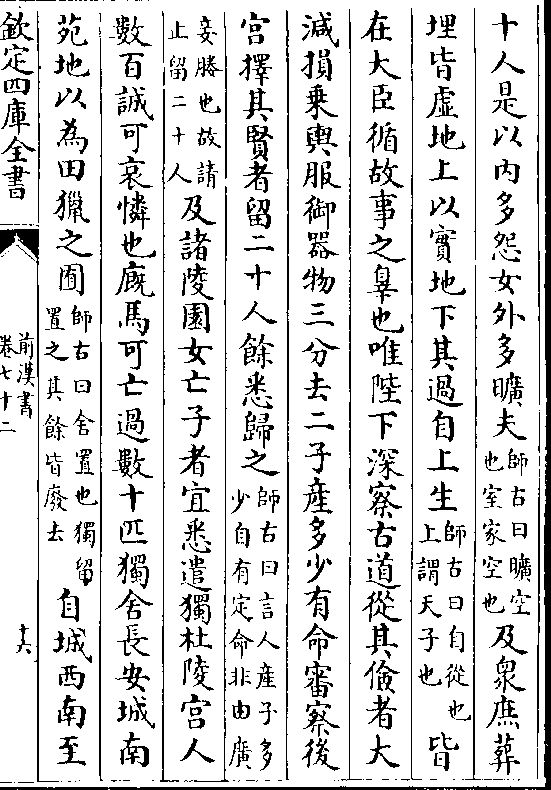 十人是以内多怨女外多曠夫師古曰曠空也室家空也及衆庶葬
埋皆虛地上以實地下其過自上生師古曰自從也上謂天子也皆
在大臣循故事之辠也唯陛下深察古道從其儉者大
減損乗輿服御器物三分去二子產多少有命審察後
宮擇其賢者留二十人餘悉歸之師古曰言人產子多少自有定命非由廣
妾媵也故請止留二十人及諸陵園女亡子者宜悉遣獨杜陵宮人
數百誠可哀憐也廐馬可亡過數十匹獨舍長安城南
苑地以為田獵之囿師古曰舍置也獨留置之其餘皆廢去自城西南至
欽定四庫全書
前漢書
卷七十二
十六